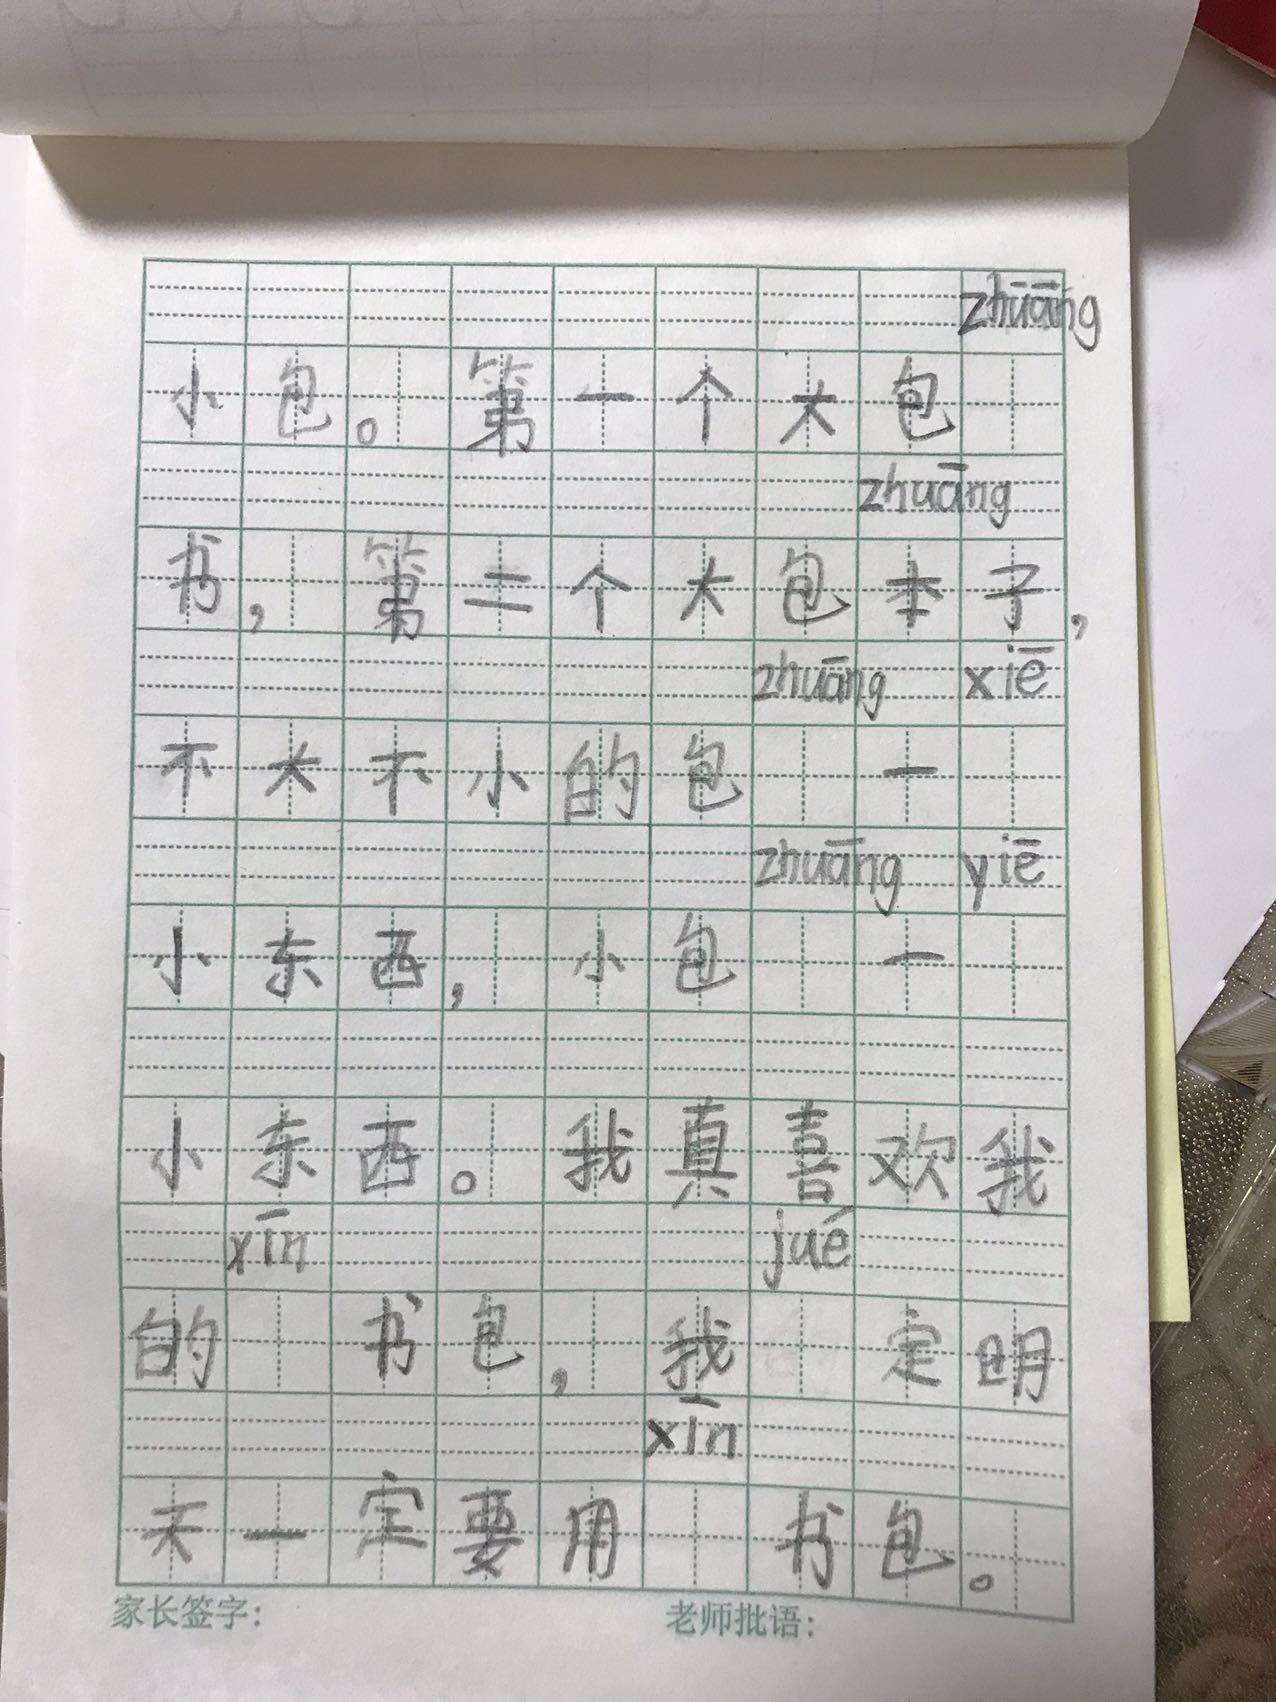 zhuāng
小包。第一个大包
zhuāng
书，第二个大包本子，
zhuāng xiē
不大不小的包 一
zhuāng yiē
小东西，小包 一
小东西。我真喜欢我
xīn jué
的 书包，我 定明
xīn
天一定要用 书包。
家长签字： 老师批语：